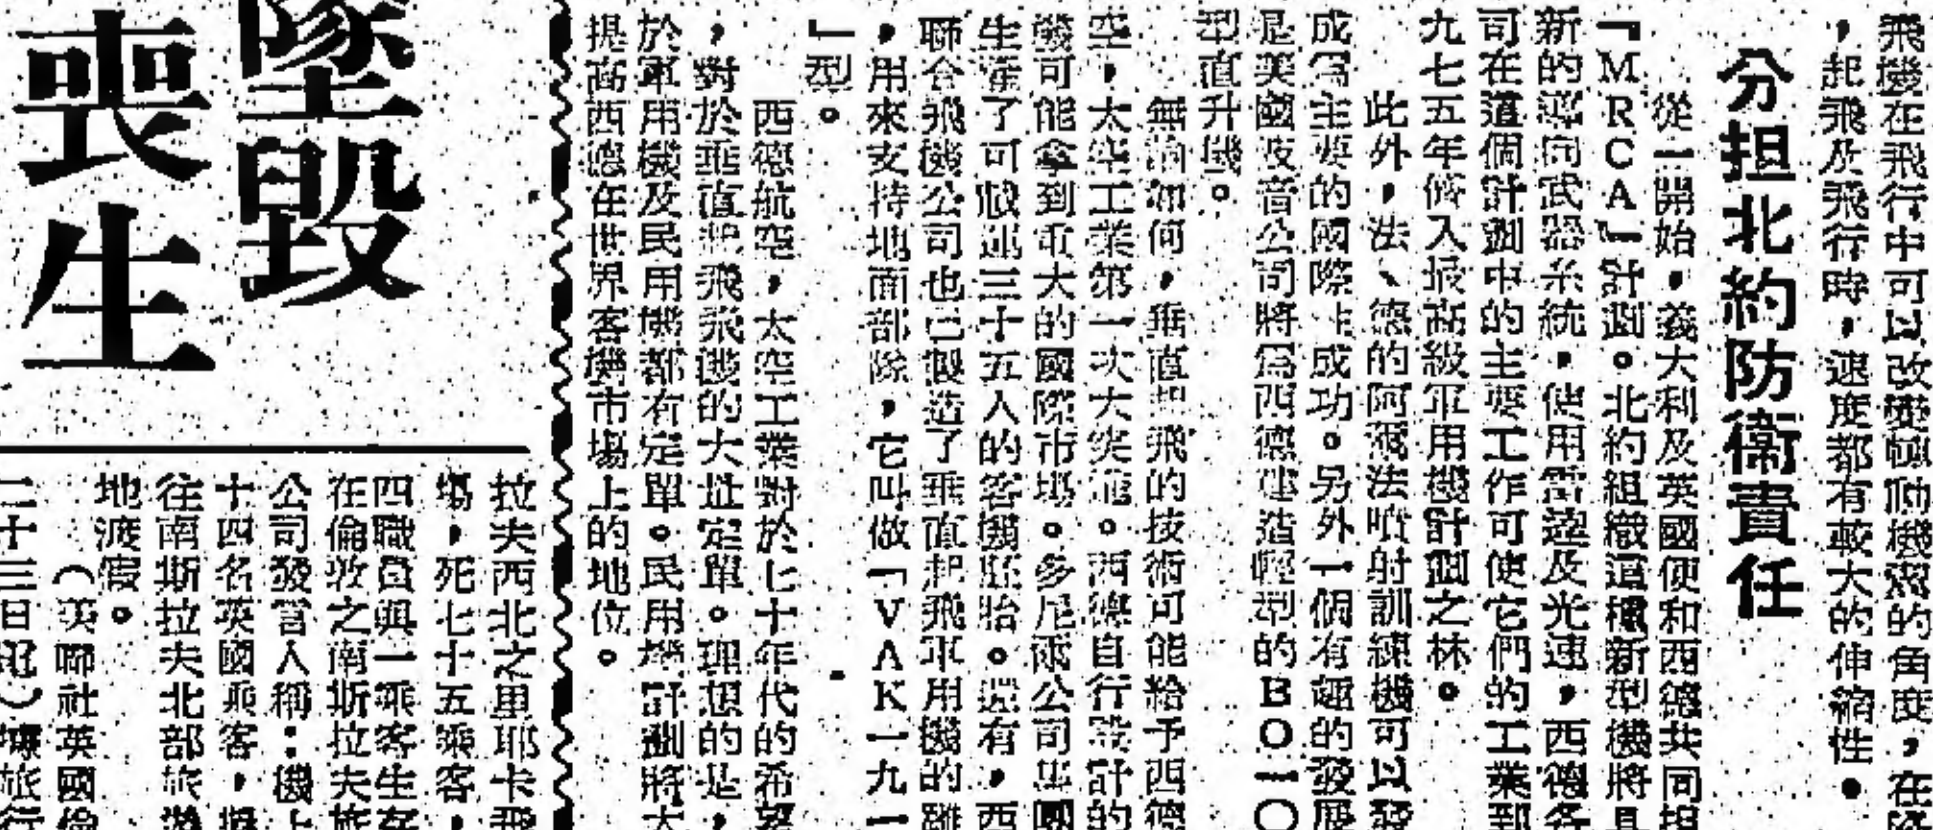 飛機在飛行中可以改變傾動機翼的角度，在降
，起飛及飛行時，速度都有較大的伸縮性。
分担北約防衛責任
從一開始，義大利及英國便和西德共同担
「MRCA」計劃。北約組織這種新型機將具
新的導向武器系統，使用雷達及光速，西德各
司在這個計劃中的主要工作可使它們的工業到
九七五年併入最高級軍用機計劃之林。
此外，法、德的阿爾法噴射訓練機可以發
成為主要的國際性成功。另外一個有趣的發展
是美國波音公司將為西德建造輕型的BO一〇
型直升機。
無論如何，垂直起飛的技術可能給予西德
空，太空工業第一次大突破。西德自行設計的
機可能拿到重大的國際市場。多尼爾公司集團
生產了可載運三十五人的客機胚胎。還有，西
聯合飛機公司也已製造了垂直起飛軍用機的雛
，用來支持地面部隊，它叫做「VAK一九一
」型。
西德航空，太空工業對於七十年代的希望
，對於垂直起飛飛機的大批定單。理想的是，
於軍用機及民用機都有定單。民用機計劃將大
提高西德在世界客機市場上的地位。
墜毀
喪生
拉夫西北之里耶卡飛
場，死七十五乘客，
四職員與一乘客生存
在倫敦之南斯拉夫旅
公司發言人稱：機上
十四名英國乘客，擬
往南斯拉夫北部旅遊
地渡假。
（美聯社英國倫
二十三日電）據旅行